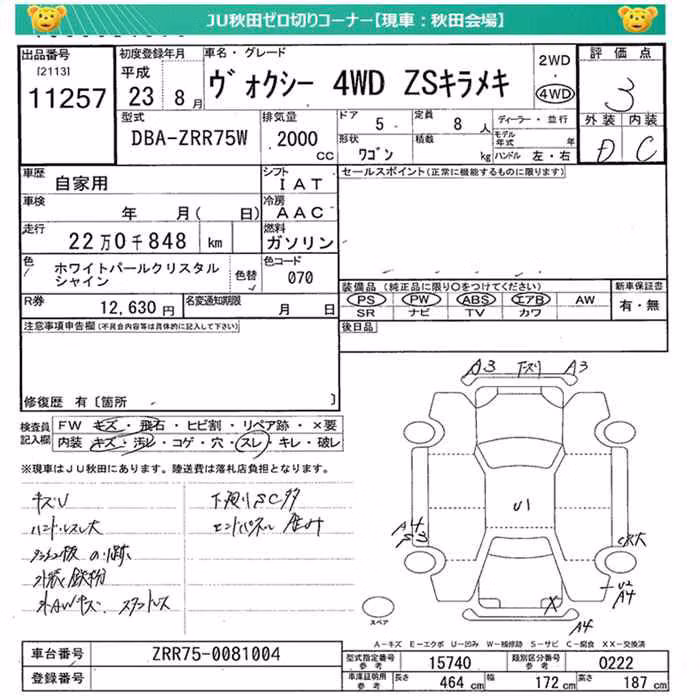 JU秋田ゼロ切りコーナー【現車：秋田会場】
出品番号
[2113]
11257
初度登録年月
平成
23 年 8 月
車名・グレード
ヴォクシー 4WD ZSキラメキ
2WD
・
4WD
評価点
3
外装 内装
D C
型式
DBA-ZRR75W
排気量
2000 CC
ドア 5
定員 8 人
形状 ワゴン
積載 kg
ディーラー・並行
モデル年式 年
ハンドル 左・右
車歴
自家用
シフト
IAT
車検
年 月( 日)
冷房
AAC
走行
22万0千848 km
燃料
ガソリン
色
ホワイトパールクリスタルシャイン
色替
色コード
070
R券 12,630 円
名変通知期限 月 日
セールスポイント(正常に機能するものに限ります)
装備品 (純正品に限り○をつけてください)
PS PW ABS エアB AW
SR ナビ TV カワ
新車保証書
有・無
後日品
注意事項申告欄 (不具合内容等は具体的に記入して下さい)
修復歴 有 [箇所 ]
検査員記入欄
FW キズ・飛石・ヒビ割・リペア跡・×要
内装 キズ・汚レ・コゲ・穴・スレ・キレ・破レ
※現車はJU秋田にあります。陸送費は落札店負担となります。
キズU
ハンドルスレ大
外装鉄粉
スタッドレス
下廻りSC多
エンドパネル
A3 下スリ A3
U1
A4
U2
A4
X
A4
スペア
A－キズ E－エクボ U－凹み W－補修跡 S－サビ C－腐食 XX－交換済
車台番号 ZRR75-0081004
登録番号
型式指定番号 参考 15740
類別区分番号 参考 0222
車庫証明用 参考 長さ 464 cm 幅 172 cm 高さ 187 cm